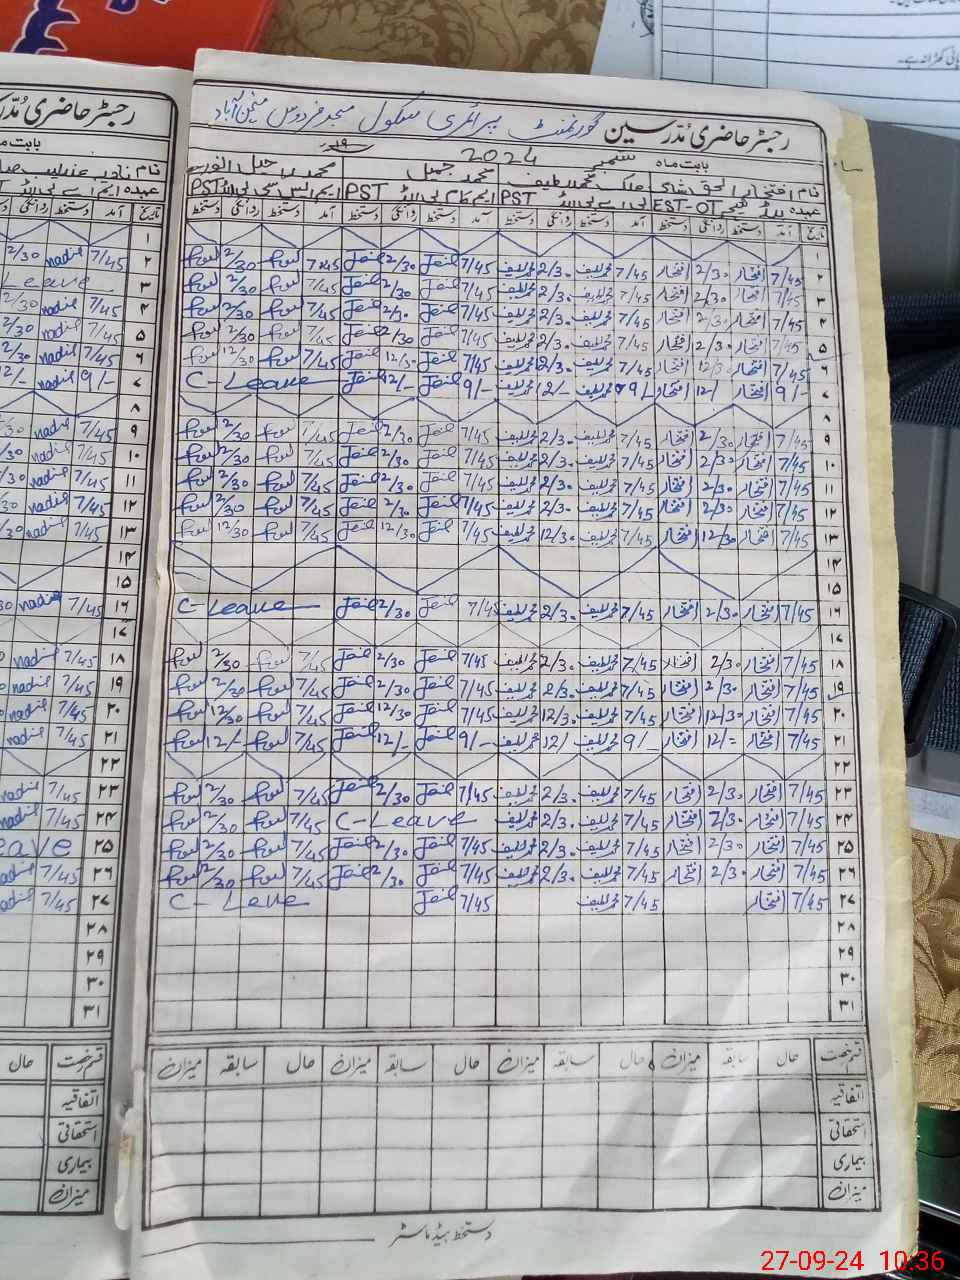 رجسٹر حاضری مُدّرسین گورنمنٹ پرائمری سکول مسجد فردوس
بابت ماہ ستمبر 2024
نام افتخار الحق شاہ ملک محمد لطیف محمد جمیل محمد راحیل انور
عہدہ ہیڈ ٹیچر EST-OT بی اے بی ایڈ PST ایم کام بی ایڈ PST PST
تاریخ آمد دستخط روانگی دستخط آمد دستخط روانگی دستخط آمد دستخط روانگی دستخط آمد دستخط روانگی دستخط
۱
۲ 7/45 افتخار 2/30 افتخار 7/45 محمد لطیف 2/30 محمد لطیف 7/45 Jamil 2/30 Jamil 7/45 2/30
۳ 7/45 افتخار 2/30 افتخار 7/45 محمد لطیف 2/30 محمد لطیف 7/45 Jamil 2/30 Jamil 7/45 2/30
۴ 7/45 افتخار 2/30 افتخار 7/45 محمد لطیف 2/30 محمد لطیف 7/45 Jamil 2/30 Jamil 7/45 2/30
۵ 7/45 افتخار 2/30 افتخار 7/45 محمد لطیف 2/30 محمد لطیف 7/45 Jamil 2/30 Jamil 7/45 2/30
۶ 7/45 افتخار 12/30 افتخار 7/45 محمد لطیف 12/30 محمد لطیف 7/45 Jamil 12/30 Jamil 7/45 12/30
۷ 9/- افتخار 12/ افتخار 9/ محمد لطیف 12/- محمد لطیف 9/- Jamil 12/- Jamil C-Leave
۸
۹ 7/45 افتخار 2/30 افتخار 7/45 محمد لطیف 2/30 محمد لطیف 7/45 Jamil 2/30 Jamil 7/45 2/30
۱۰ 7/45 افتخار 2/30 افتخار 7/45 محمد لطیف 2/30 محمد لطیف 7/45 Jamil 2/30 Jamil 7/45 2/30
۱۱ 7/45 افتخار 2/30 افتخار 7/45 محمد لطیف 2/30 محمد لطیف 7/45 Jamil 2/30 Jamil 7/45 2/30
۱۲ 7/45 افتخار 2/30 افتخار 7/45 محمد لطیف 2/30 محمد لطیف 7/45 Jamil 2/30 Jamil 7/45 2/30
۱۳ 7/45 افتخار 12/30 افتخار 7/45 محمد لطیف 12/30 محمد لطیف 7/45 Jamil 12/30 Jamil 7/45 12/30
۱۴
۱۵
۱۶ 7/45 افتخار 2/30 افتخار 7/45 محمد لطیف 2/30 محمد لطیف 7/45 Jamil 2/30 Jamil C-Leave
۱۷
۱۸ 7/45 افتخار 2/30 افتخار 7/45 محمد لطیف 2/30 محمد لطیف 7/45 Jamil 2/30 Jamil 7/45 2/30
۱۹ 7/45 افتخار 2/30 افتخار 7/45 محمد لطیف 2/30 محمد لطیف 7/45 Jamil 2/30 Jamil 7/45 2/30
۲۰ 7/45 افتخار 12/30 افتخار 7/45 محمد لطیف 12/30 محمد لطیف 7/45 Jamil 12/30 Jamil 7/45 12/30
۲۱ 7/45 افتخار 12/= افتخار 9/_ محمد لطیف 12/ محمد لطیف 9/- Jamil 12/- Jamil 7/45 12/-
۲۲
۲۳ 7/45 افتخار 2/30 افتخار 7/45 محمد لطیف 2/30 محمد لطیف 7/45 Jamil 2/30 Jamil 7/45 2/30
۲۴ 7/45 افتخار 2/30 افتخار 7/45 محمد لطیف 2/30 محمد لطیف C-Leave 7/45 2/30
۲۵ 7/45 افتخار 2/30 افتخار 7/45 محمد لطیف 2/30 محمد لطیف 7/45 Jamil 2/30 Jamil 7/45 2/30
۲۶ 7/45 افتخار 2/30 افتخار 7/45 محمد لطیف 2/30 محمد لطیف 7/45 Jamil 2/30 Jamil 7/45 2/30
۲۷ 7/45 افتخار 7/45 محمد لطیف 7/45 Jamil C-Leve
۲۸
۲۹
۳۰
۳۱
قسم رخصت حال سابقہ میزان حال سابقہ میزان حال سابقہ میزان حال سابقہ میزان
اتفاقیہ
استحقاقی
بیماری
میزان
دستخط ہیڈ ماسٹر
رجسٹر حاضری مُدّر
بابت ما
نام نادر عندلیب
عہدہ ایم اے بی ایڈ
تاریخ آمد دستخط
۱
۲ 7/45 nadil 2/30
۳ Leave
۴ 7/45 nadil 2/30
۵ 7/45 nadil 2/30
۶ 7/45 nadil 2/30
۷ 9/- nadil 12/-
۸
۹ 7/45 nadil
۱۰ 7/45 nadil
۱۱ 7/45 nadil
۱۲ 7/45 nadil
۱۳ 7/45 nadil
۱۴
۱۵
۱۶ 7/45 nadil
۱۷
۱۸ 7/45 nadil
۱۹ 7/45 nadil
۲۰ 7/45 nadil
۲۱ 7/45 nadil
۲۲
۲۳ 7/45 nadil
۲۴ 7/45 nadil
۲۵ eave
۲۶ 7/45 nadil
۲۷ 7/45 nadil
۲۸
۲۹
۳۰
۳۱
قسم رخصت حال
اتفاقیہ
استحقاقی
بیماری
میزان
27-09-24 10:36